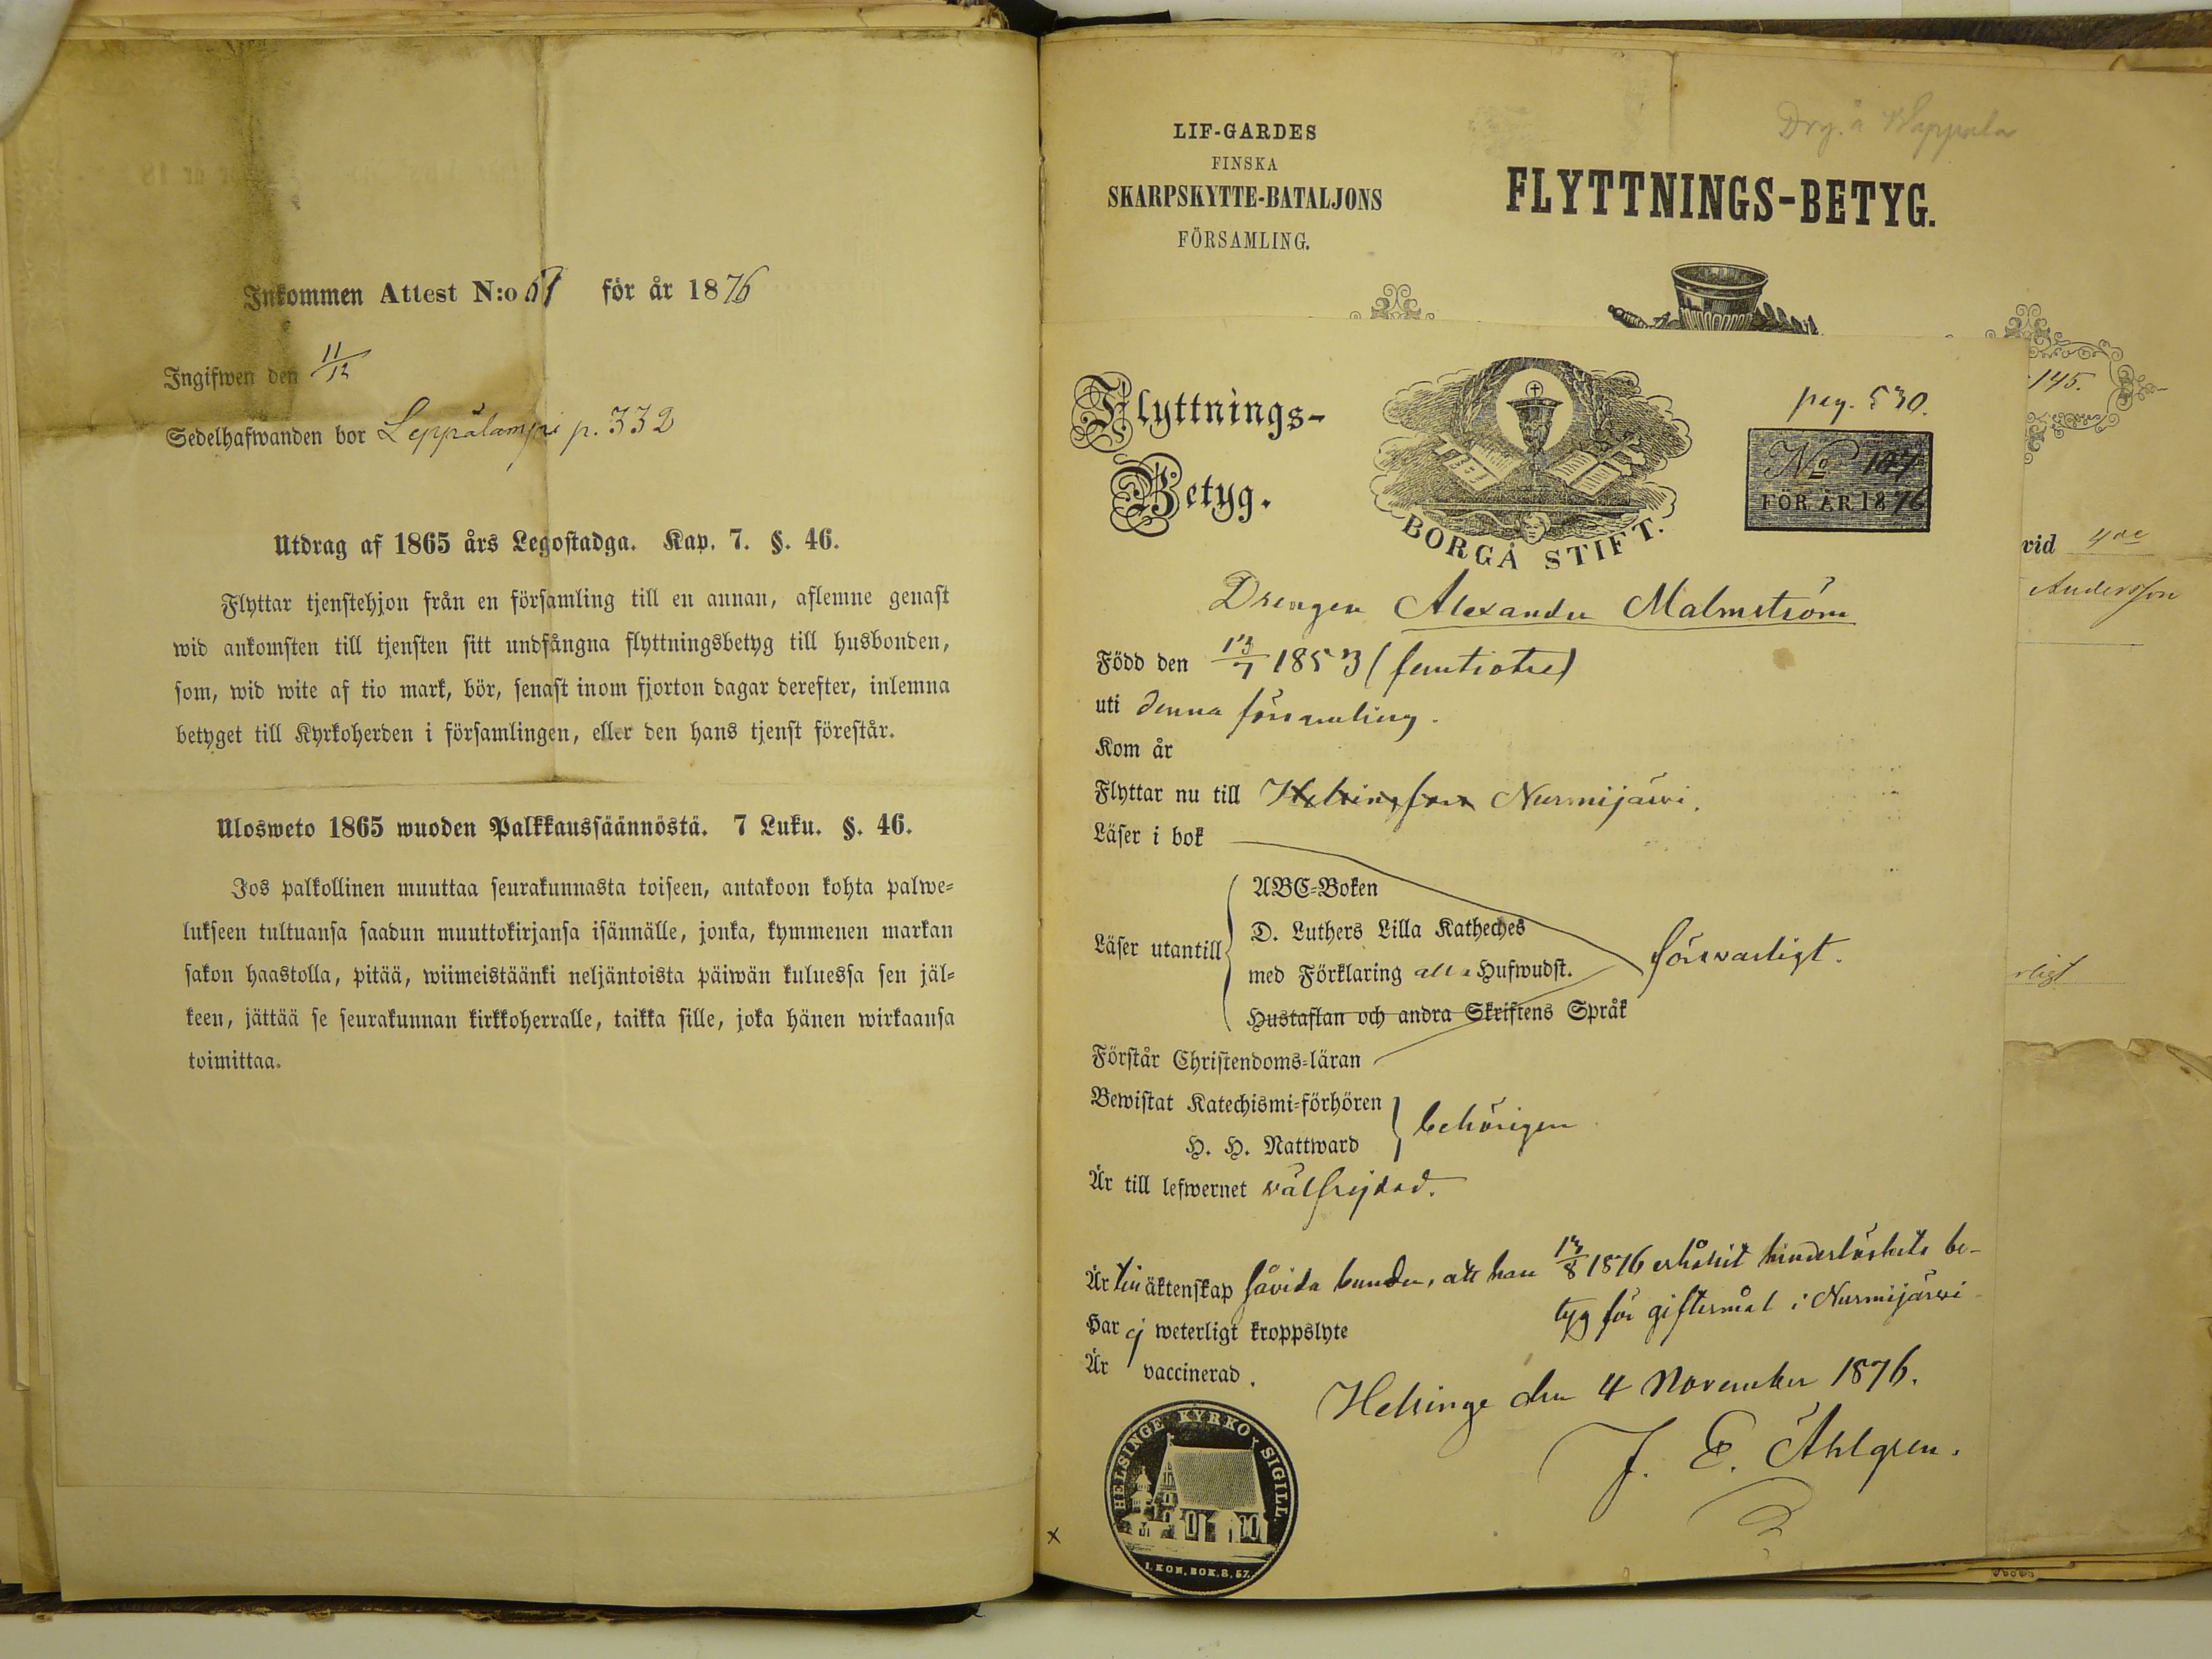 Inkommen Attest N:o 61 för år 1876
Ingifwen den 11/12
Sedelhafwanden bor Leppälampi p. 332
Utdrag af 1865 års Legostadga. Kap. 7. §. 46.
Flyttar tjenstehjon från en församling till en annan, aflemne genast
wid ankomsten till tjensten sitt undfångna flyttningsbetyg till husbonden,
som, wid wite af tio mark, bör, senast inom fjorton dagar derefter, inlemna
betyget till Kyrkoherden i församlingen, eller den hans tjenst förestår.
Ulosweto 1865 wuoden Palkkaussäännöstä. 7 Luku. §. 46.
Jos palkollinen muuttaa seurakunnasta toiseen, antakoon kohta palwe-
lukseen tultuansa saadun muuttokirjansa isännälle, jonka, kymmenen markan
sakon haastolla, pitää, wiimeistäänki neljäntoista päiwän kuluessa sen jäl-
keen, jättää se seurakunnan kirkkoherralle, taikka sille, joka hänen wirkaansa
toimittaa.
Drg. å
LIF-GARDES
FINSKA
SKARPSKYTTE-BATALJONS
FÖRSAMLING.
FLYTTNINGS-BETYG.
145.
vid 4de
Andersson
rligt
Flyttnings-
Betyg.
BORGÅ STIFT.
pag. 530.
No 147
FÖR ÅR 1876
Drengen Alexander Malmström
Född den 13/7 1853 (femtiotre)
uti denna församling.
Kom år
Flyttar nu till Helsingfors Nurmijärvi.
Läser i bok
Läser utantill
ABC-Boken
D. Luthers Lilla Katheches
med Förklaring alla Hufwudst.
Hustaflan och andra Skriftens Språk
försvarligt.
Förstår Christendoms-läran
Bewistat Katechismi-förhören
H. H. Nattward
behörigen
Är till lefwernet välfrejdad.
Är till äktenskap såvida bunden, att han 13/8 1876 erhållit hinderlöshets be-
tyg för giftermål i Nurmijärvi
Har ej weterligt kroppslyte
Är vaccinerad.
Helsinge den 4 November 1876.
J. E. Åhlgren.
HELSINGE KYRKO SIGILL
1. KON. BOK. 8, 57.
x